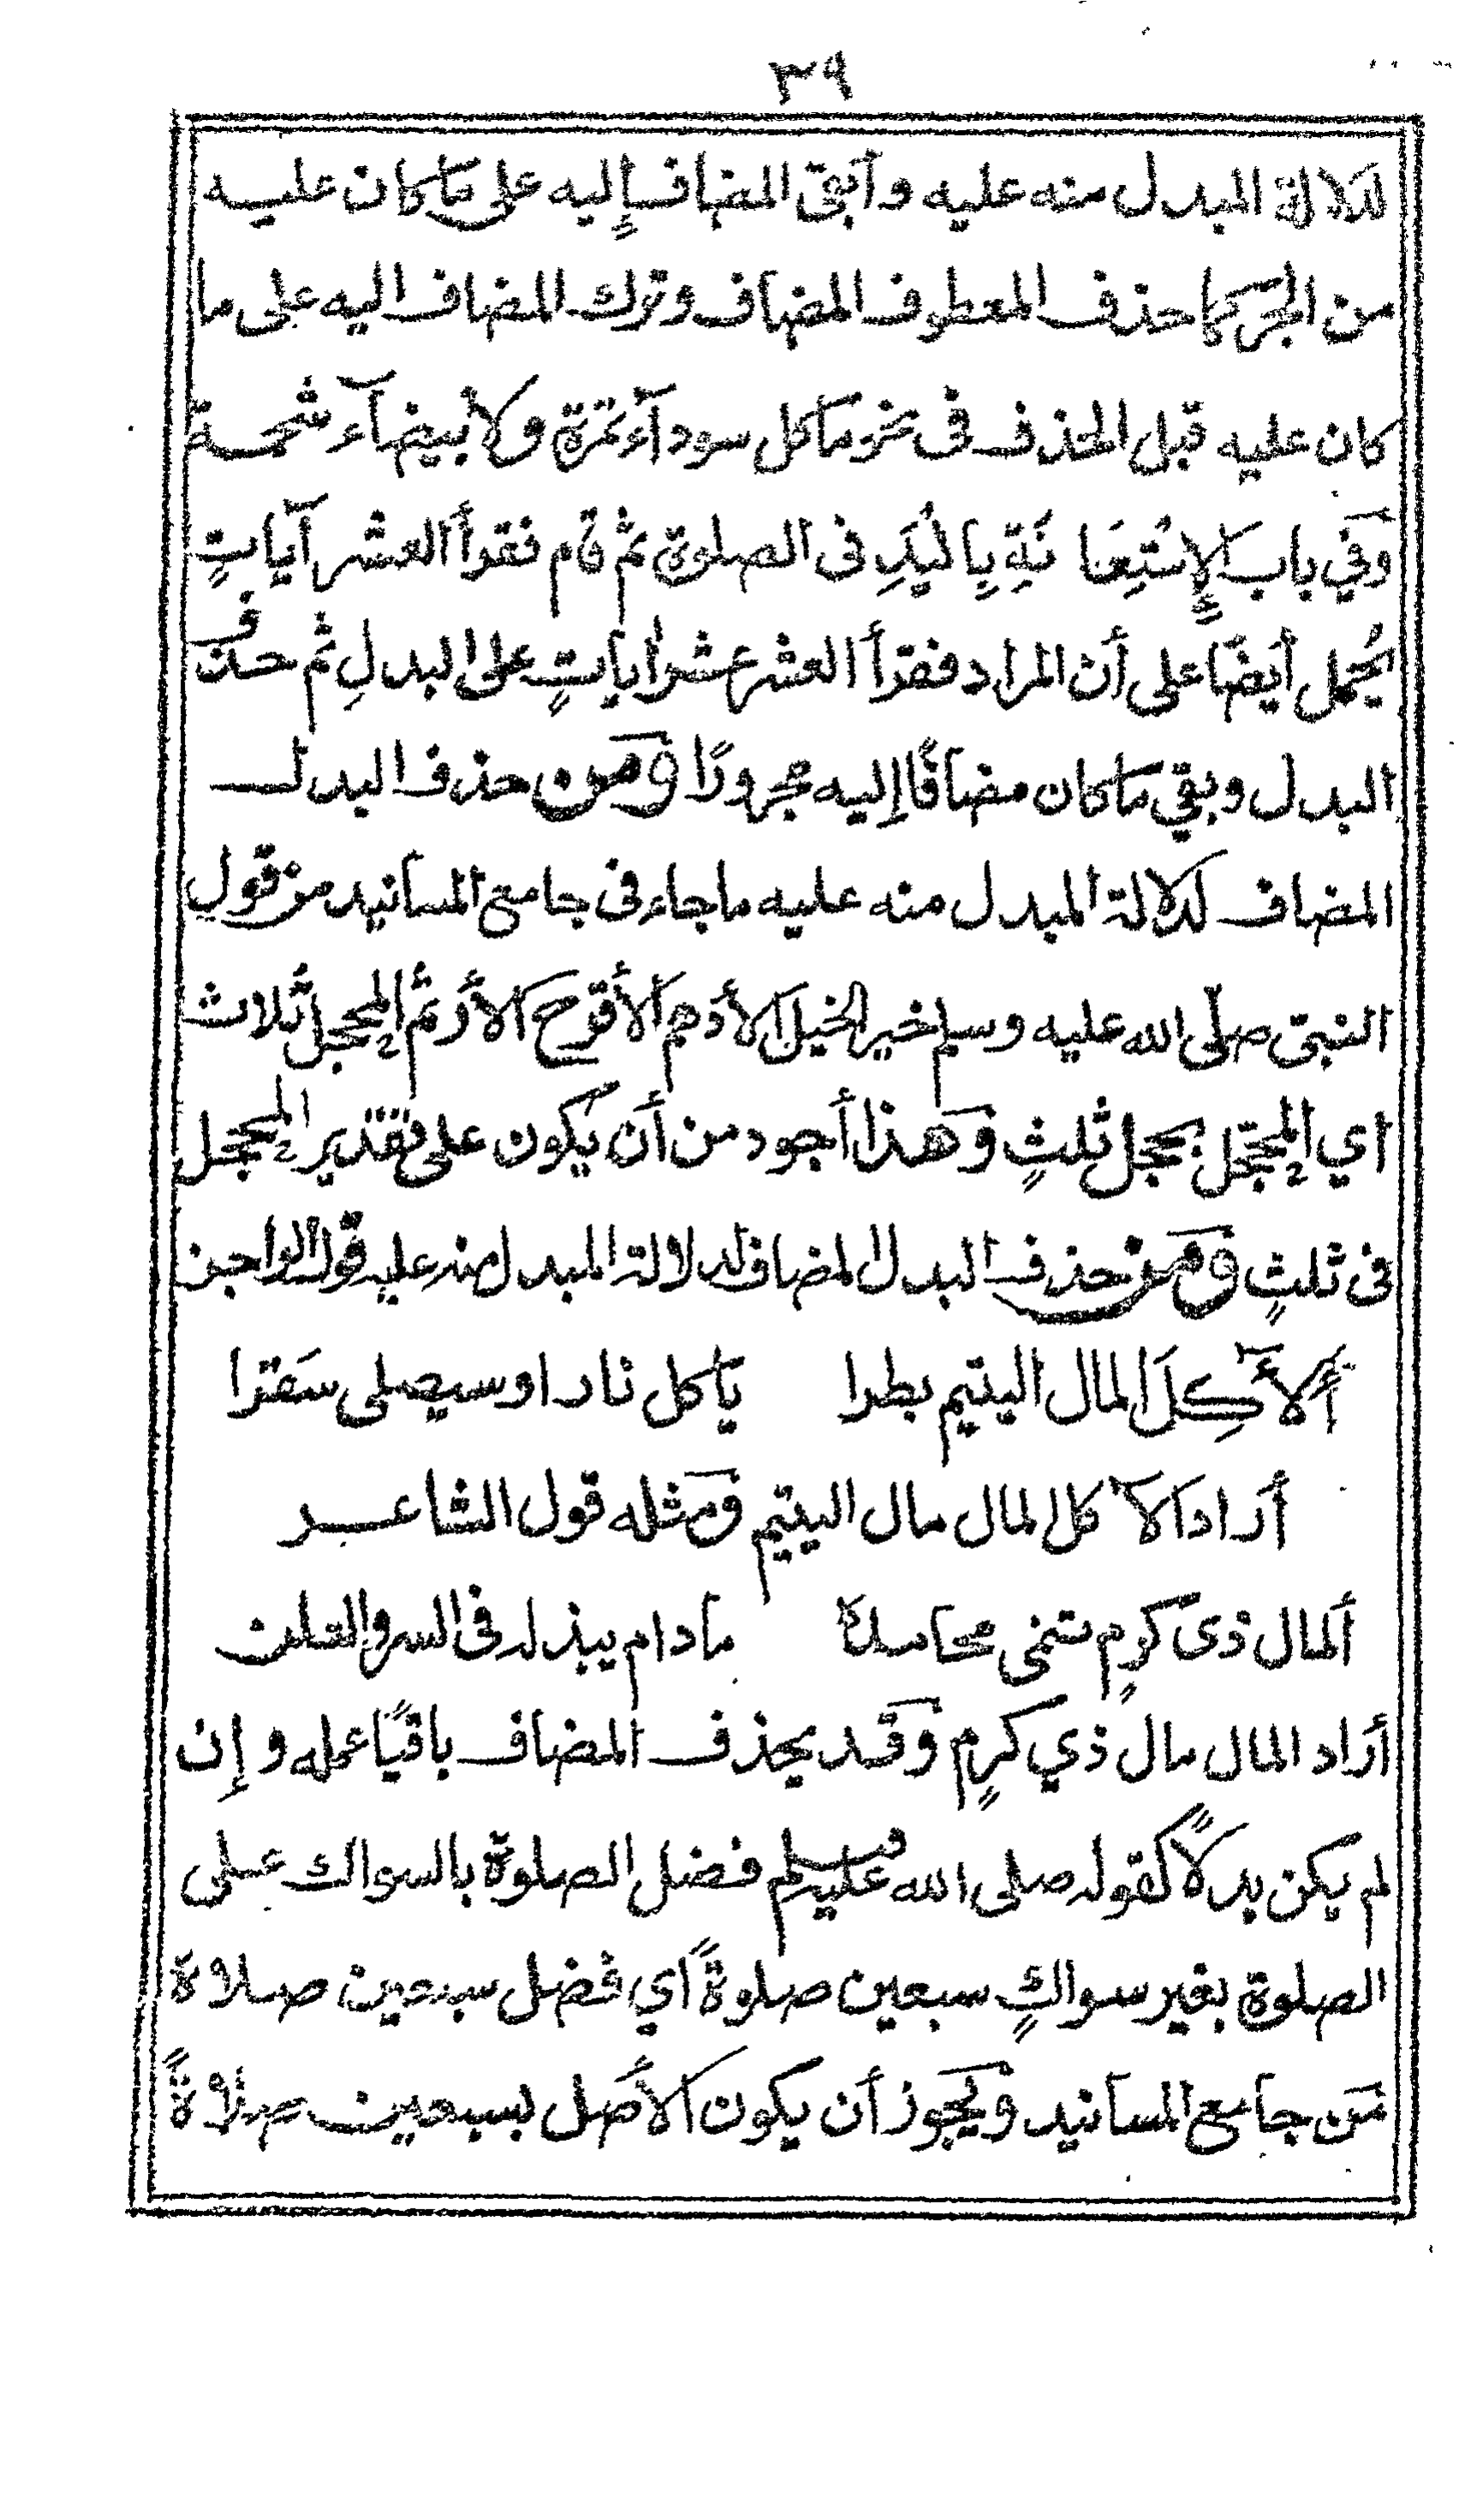 ٣٩
لدلالة المبدل منه عليه وأبقى المضاف إليه على ما كان عليه
من الجر كما حذف المعطوف المضاف وترك المضاف اليه على ما
كان عليه قبل الحذف فى نحو ما كل سوداء تمرة ولا بيضآء شحمة
وفي باب الإستعانة باليد فى الصلوة ثم قام فقرأ العشر آيات
يحمل أيضًا على أن المراد فقرأ العشر عشر ايات على البدل ثم حذف
البدل وبقي ما كان مضافًا إليه مجرورًا ومن حذف البدل
المضاف لدلالة المبدل منه عليه ما جاء فى جامع المسانيد من قول
النبى صلى الله عليه وسلم خير الخيل الأدهم الأقرح الأرثم المحجل ثلاث
اي المحجل محجل ثلثٍ وهذا أجود من أن يكون على تقدير المحجل
فى ثلثٍ ومن حذف البدل المضاف لدلالة المبدل منه عليه قول الراجز
ألآكل المال اليتيم بطرا ياكل نارا وسيصلى سقرا
أراد الآكل المال مال اليتيم ومثله قول الشاعر
ألمال ذى كرمٍ تنمى محامده ما دام يبذله فى السر والعلن
أراد المال مال ذي كرمٍ وقد يحذف المضاف باقيًا عمله وإن
لم يكن بدلاً كقوله صلى الله عليه وسلم فضل الصلوة بالسواك على
الصلوة بغير سواكٍ سبعين صلوةً اي فضل سبعين صلاة
من جامع المسانيد ويجوز أن يكون الأصل بسبعين صلاةً